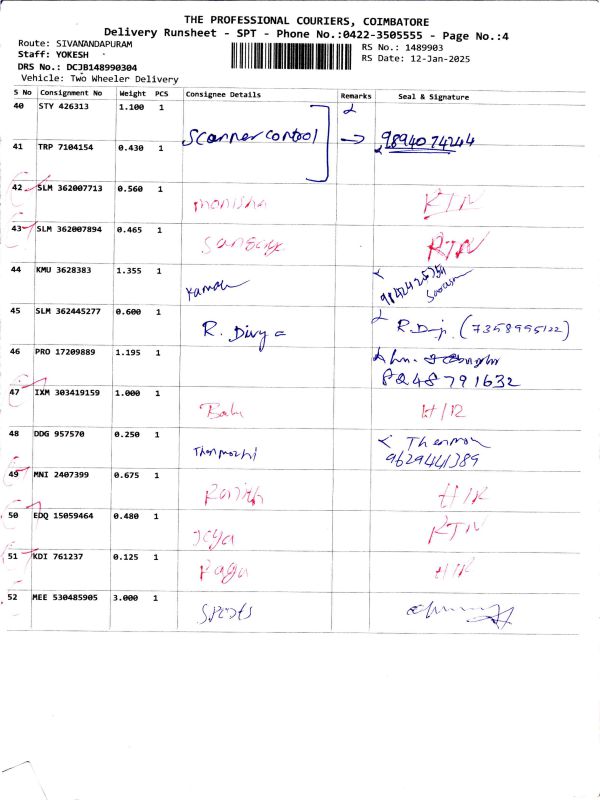 THE PROFESSIONAL COURIERS, COIMBATORE
Delivery Runsheet - SPT - Phone No.:0422-3505555 - Page No.:4
Route: SIVANANDAPURAM
RS No.: 1489903
Staff: YOKESH
RS Date: 12-Jan-2025
DRS No.: DCJB148990304
Vehicle: Two Wheeler Delivery
S No Consignment No Weight PCS Consignee Details Remarks Seal & Signature
40 STY 426313 1.100 1
Scanner control → 9894074244
41 TRP 7104154 0.430 1
42 SLM 362007713 0.560 1 monisha RTN
43 SLM 362007894 0.465 1 RTN
44 KMU 3628383 1.355 1
45 SLM 362445277 0.600 1 R. Divya R. Divj. (7358995122)
46 PRO 17209889 1.195 1
8248791632
47 IXM 303419159 1.000 1 Balu H/R
48 DDG 957570 0.250 1 Thenmozhi Thenmoz
9629441389
49 MNI 2407399 0.675 1 H/R
50 EDQ 15059464 0.480 1 Jeya RTN
51 KDI 761237 0.125 1 Raga H/R
52 MEE 530485905 3.000 1 Sports